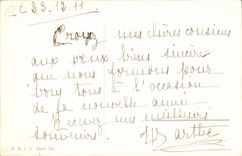 Le 23.12.11
Croyez mes chères cousines
aux vœux biens sincères
que nous formons pour
vous tous à l'occasion
de la nouvelle année
Recevez mes meilleurs
souvenirs.